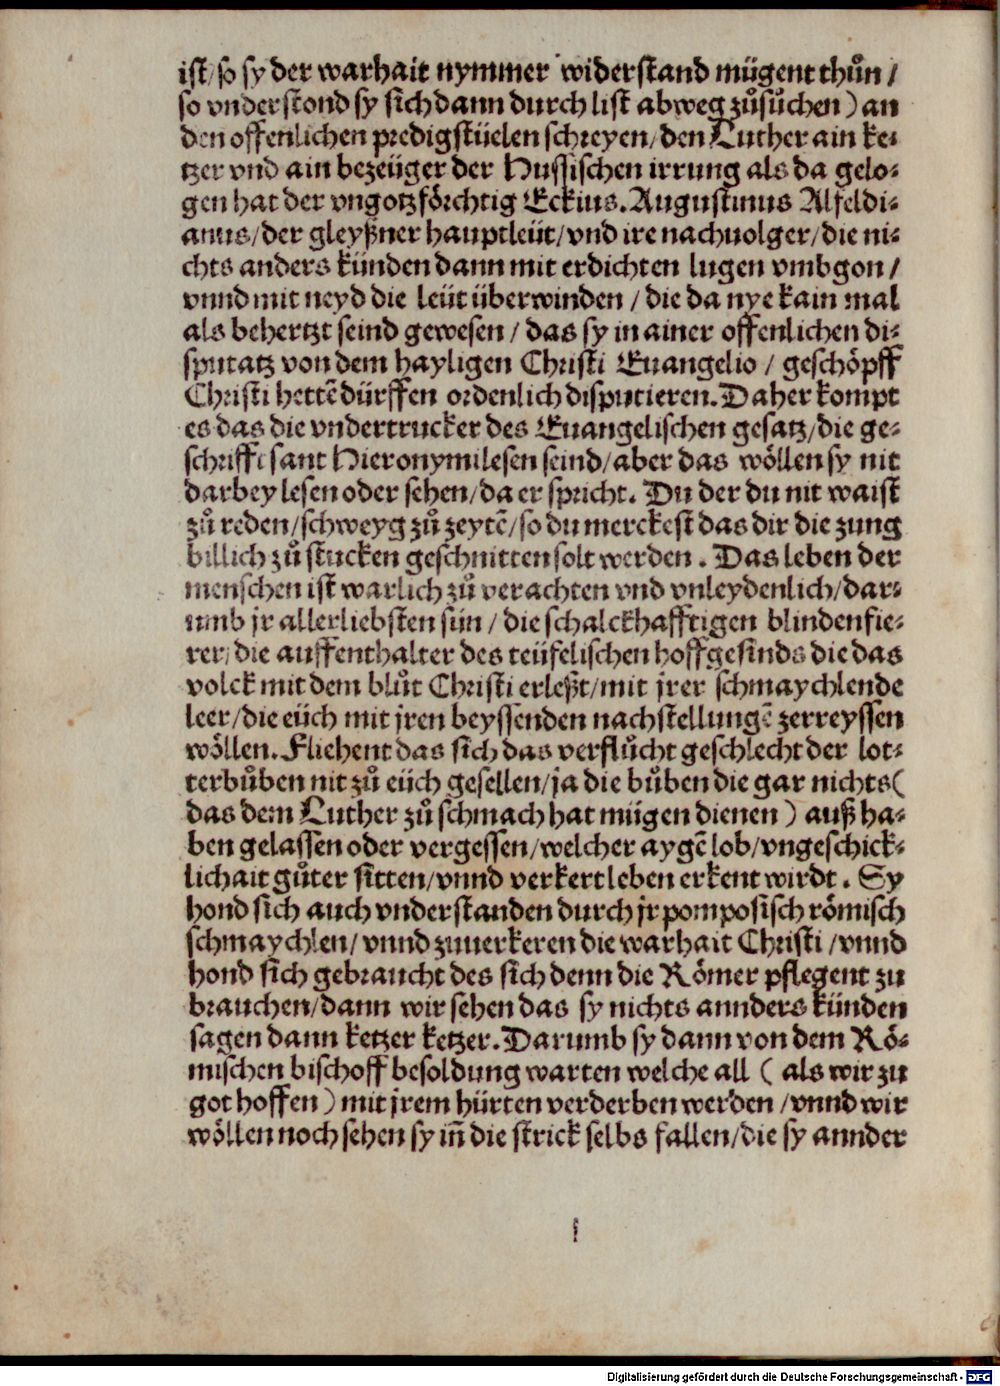 ist/ so sy der warhait nymmer widerstand mügent thůn /
so vnderstond sy sich dann durch list abweg zůsůchen ) an
den offenlichen predigstüelen schreyen/ den Luther ain ke⸗
tzer vnd ain bezeüger der Hussischen irrung als da gelo⸗
gen hat der vngotzförchtig Eckius. Augustinus Alfeldi⸗
anus/ der gleyßner hauptleüt/ vnd ire nachuolger/ die ni⸗
chts anders künden dann mit erdichten lugen vmbgon /
vnnd mit neyd die leüt überwinden / die da nye kain mal
als behertzt seind gewesen / das sy in ainer offenlichen di⸗
sputatz von dem hayligen Christi Euangelio / geschöpff
Christi hettē dürffen ordenlich disputieren. Daher kompt
es das die vndertrucker des Euangelischen gesatz/ die ge⸗
schrifft sant Hieronymi lesen seind/ aber das wöllen sy nit
darbey lesen oder sehen/ da er spricht. Du der du nit waist
zů reden/ schweyg zů zeytē/ so du merckest das dir die zung
billich zů stucken geschnitten solt werden . Das leben der
menschen ist warlich zů verachten vnd vnleydenlich/ dar⸗
umb jr allerliebsten sün / die schalckhafftigen blindenfie⸗
rer/ die auffenthalter des teüfelischen hoffgesinds die das
volck mit dem blůt Christi erleßt/ mit jrer schmaychlende
leer/ die eüch mit jren beyssenden nachstellungē zerreyssen
wöllen. Fliehent das sich das verflůcht geschlecht der lot⸗
terbůben nit zů eüch gesellen/ ja die bůben die gar nichts (
das dem Luther zů schmach hat mügen dienen ) auß ha⸗
ben gelassen oder vergessen/ welcher aygē lob/ vngeschick⸗
lichait gůter sitten/ vnnd verkert leben erkent wirdt . Sy
hond sich auch vnderstanden durch jr pomposisch römisch
schmaychlen/ vnnd zuuerkeren die warhait Christi / vnnd
hond sich gebraucht des sich denn die Römer pflegent zu
brauchen/ dann wir sehen das sy nichts annders künden
sagen dann ketzer ketzer. Darumb sy dann von dem Rö⸗
mischen bischoff besoldung warten welche all ( als wir zu
got hoffen ) mit jrem hürten verderben werden / vnnd wir
wöllen noch sehen sy in̄ die strick selbs fallen/ die sy annder
Digitalisierung gefördert durch die Deutsche Forschungsgemeinschaft - DFG